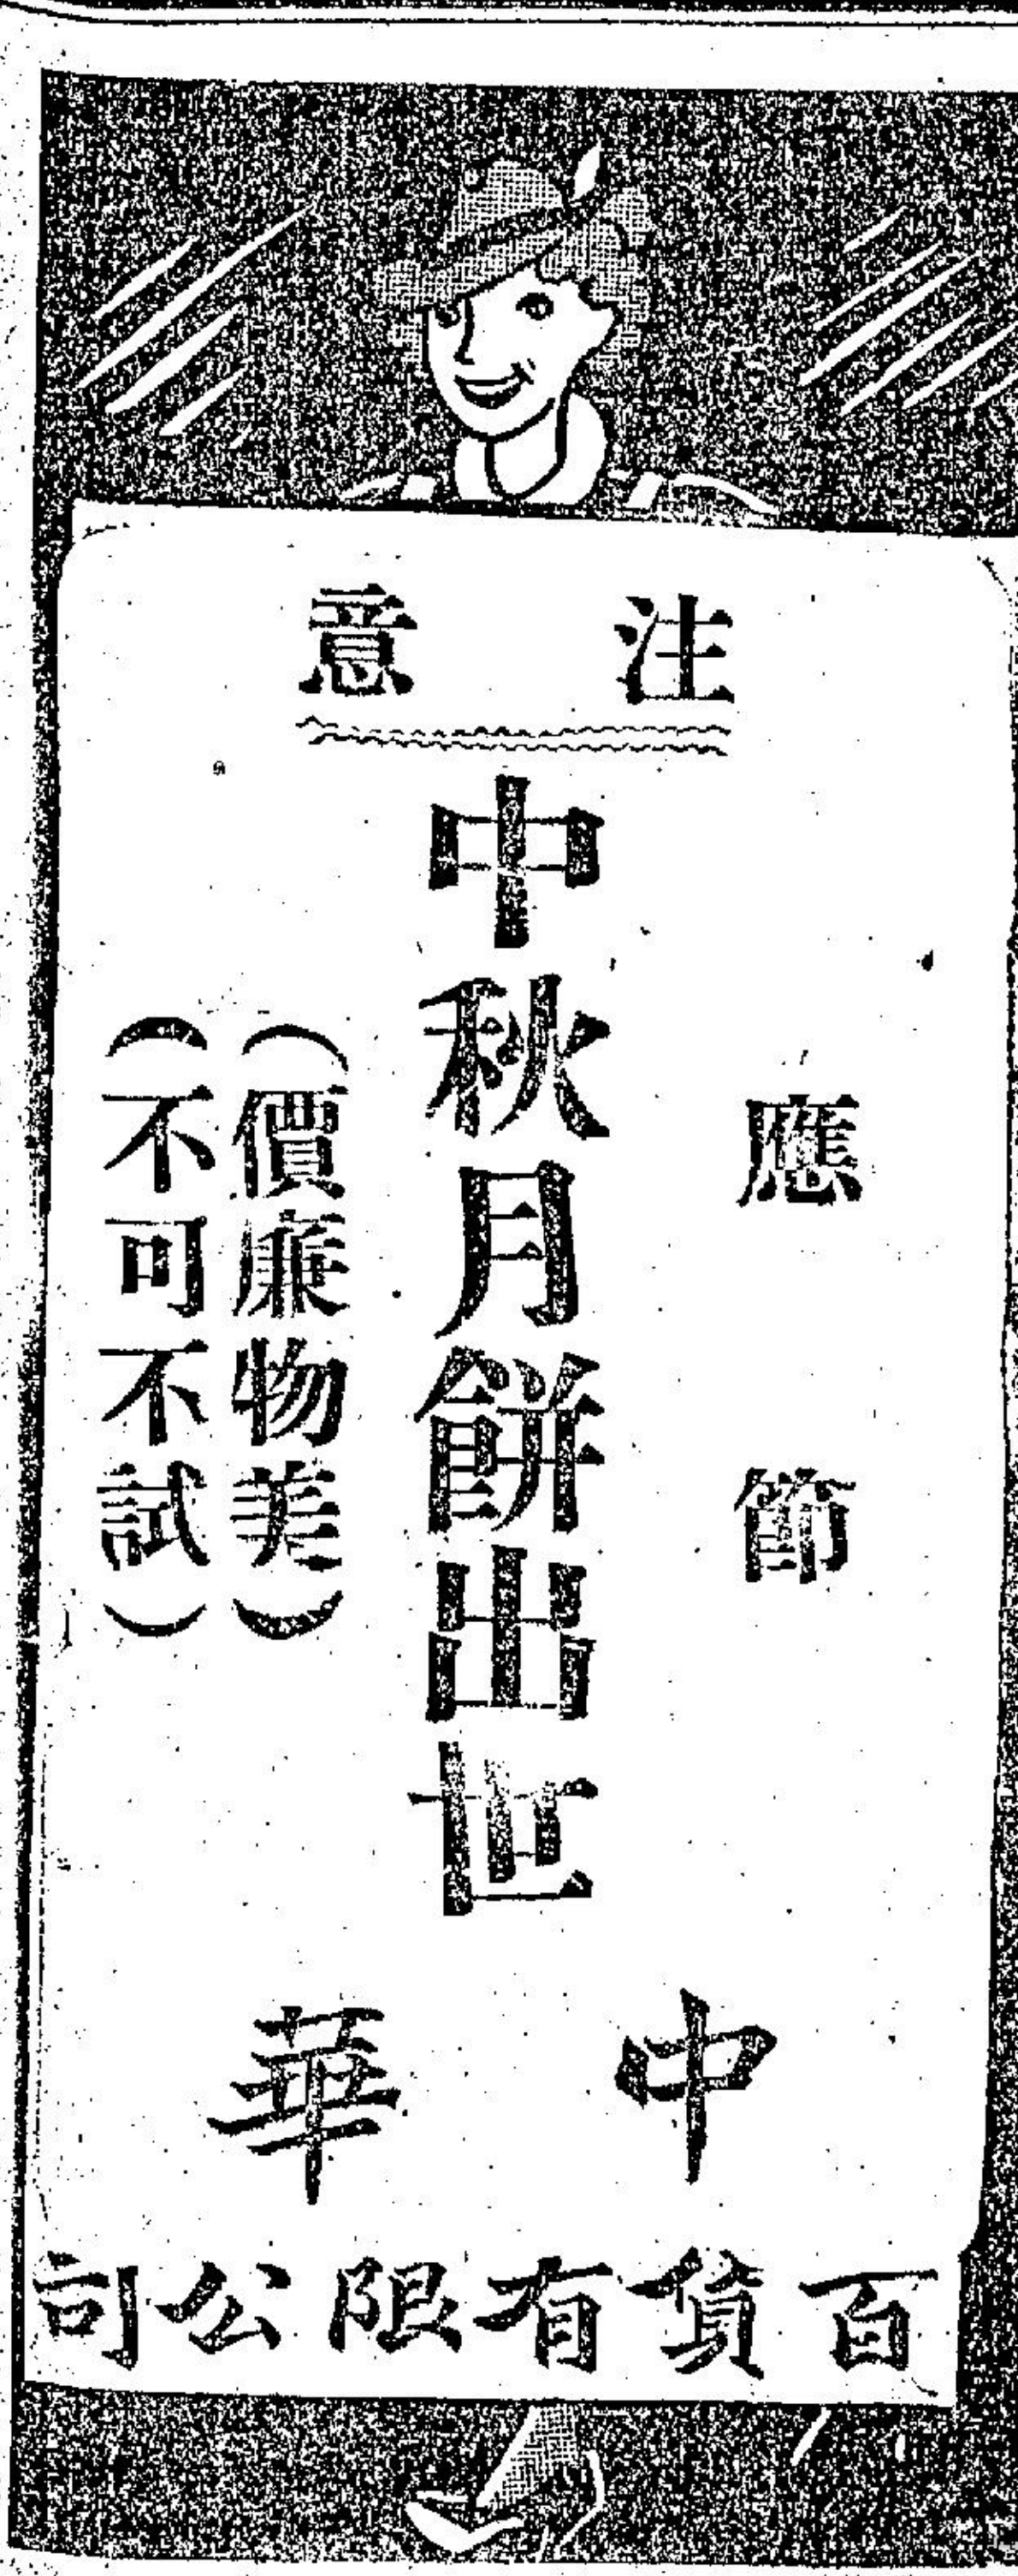 注意
應節
中秋月餅出世
（價廉物美）
（不可不試）
中華
百貨有限公司